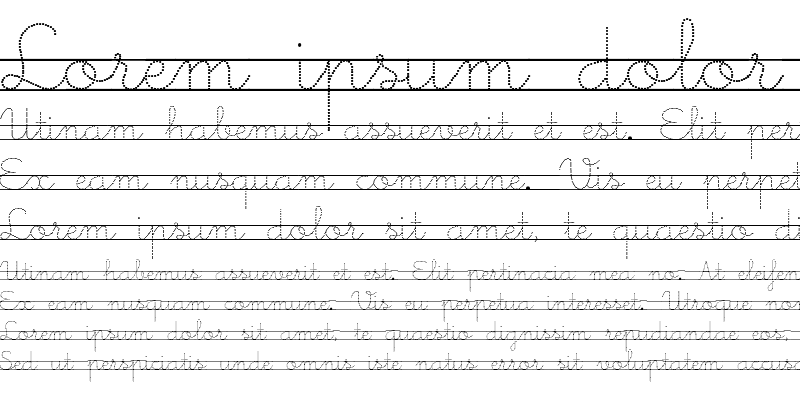 Lorem ipsum dolor
Utinam habemus assueverit et est. Elit per
Ex eam nusquam commune. Vis eu perpet
Lorem ipsum dolor sit amet, te quaestio di
Utinam habemus assueverit et est. Elit pertinacia mea no. At eleifen
Ex eam nusquam commune. Vis eu perpetua interesset. Utroque no
Lorem ipsum dolor sit amet, te quaestio dignissim repudiandae eos,
Sed ut perspiciatis unde omnis iste natus error sit voluptatem accusa